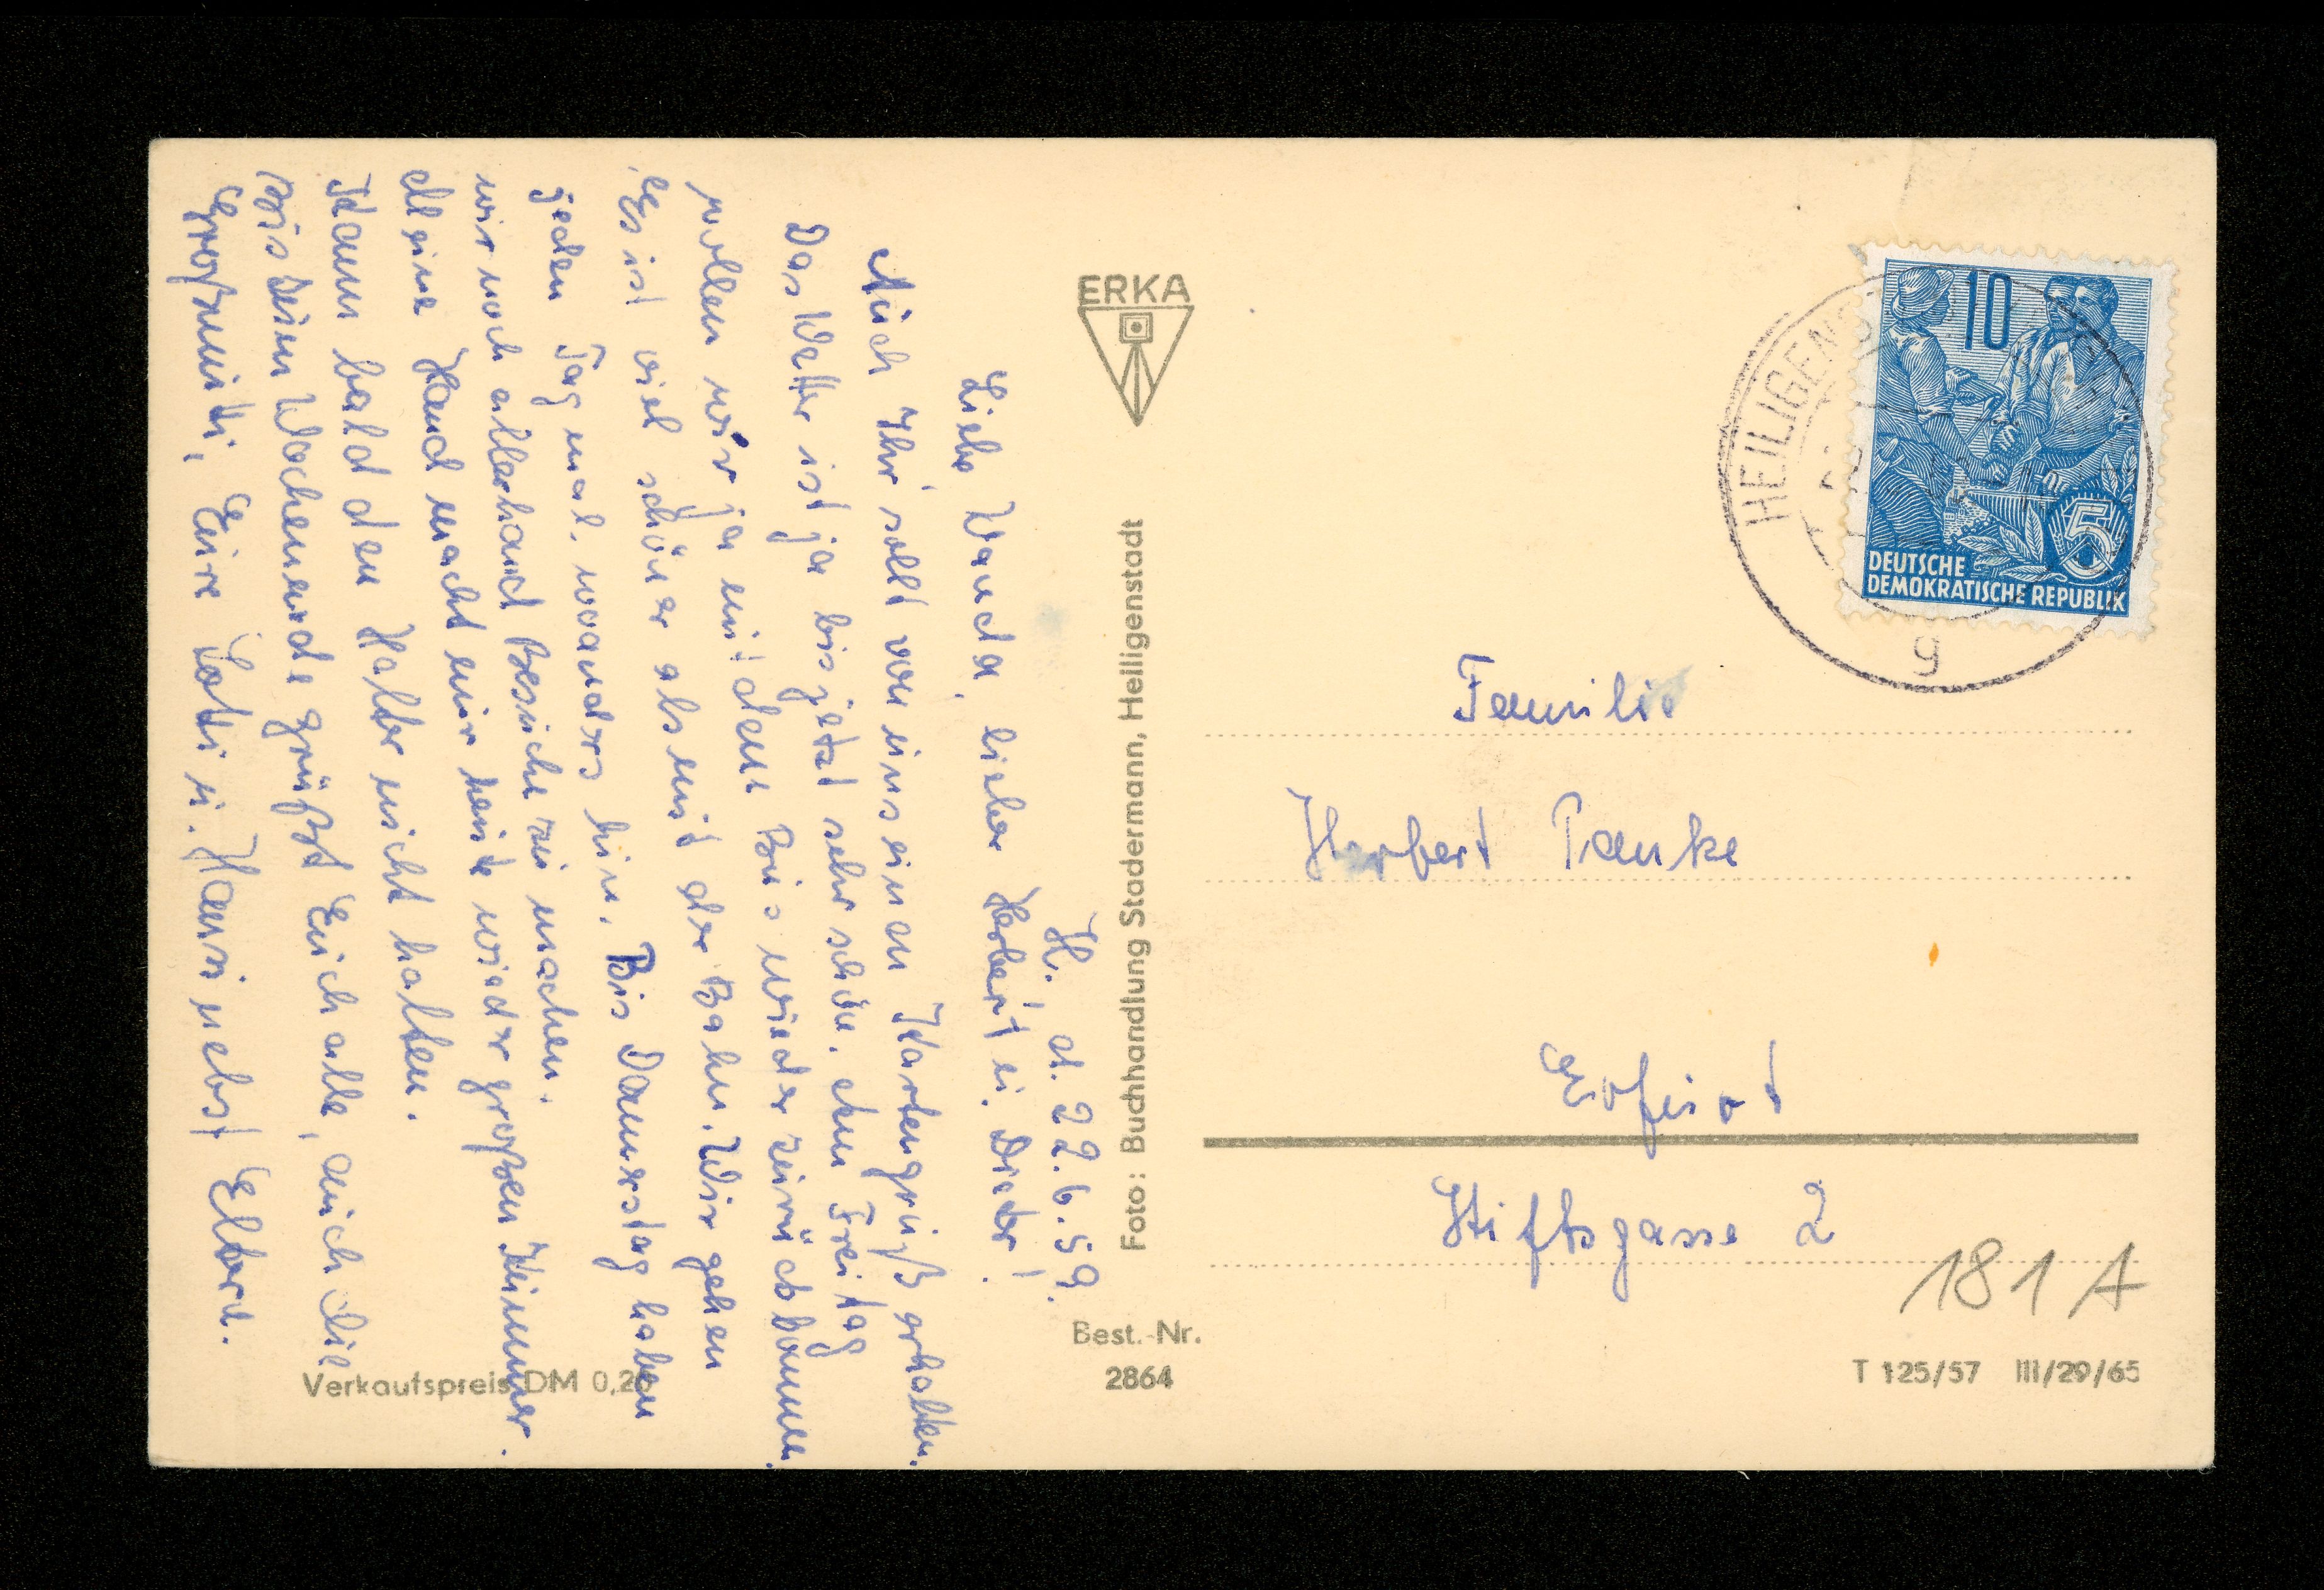 H. d. 22.6.59.
Liebe Wanda, lieber Herbert u. Dieter!
Auch Ihr sollt von uns einen Kartengruß erhalten.
Das Wetter ist ja bis jetzt sehr schön. Am Freitag
wollen wir ja mit dem Bus wieder zurückkommen.
Es ist viel schöner als mit der Bahn. Wir gehen
jeden Tag mal woanders hin. Bis Donnerstag haben
wir noch allerhand Besuche zu machen.
Meine Hand macht mir heute wieder großen Kummer.
Kann bald den Halter nicht halten.
Bis zum Wochenende grüßt Euch alle, auch die
Großmutti, Eure Lotti u. Hansi nebst Eltern.
ERKA
Foto: Buchhandlung Stadermann, Heiligenstadt
Verkaufspreis DM 0,20
Best.-Nr.
2864
HEILIGENS
g
10
5
DEUTSCHE
DEMOKRATISCHE REPUBLIK
Familie
Herbert Tanke
Erfurt
Stiftsgasse 2
181 A
T 125/57 III/29/65